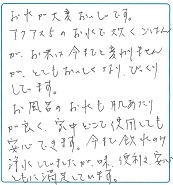 お水が大変おいしです。
アクアス5のお水で炊くごはん
が、お米は今までと変わりません
が、とてもおいしくなり、びっくり
しています。
お風呂のお水も肌あたり
が良く、家中どこで使用しても
安心できます。今まで飲水のみ
浄水していましたが、味、便利さ、安心
ともに満足しています。